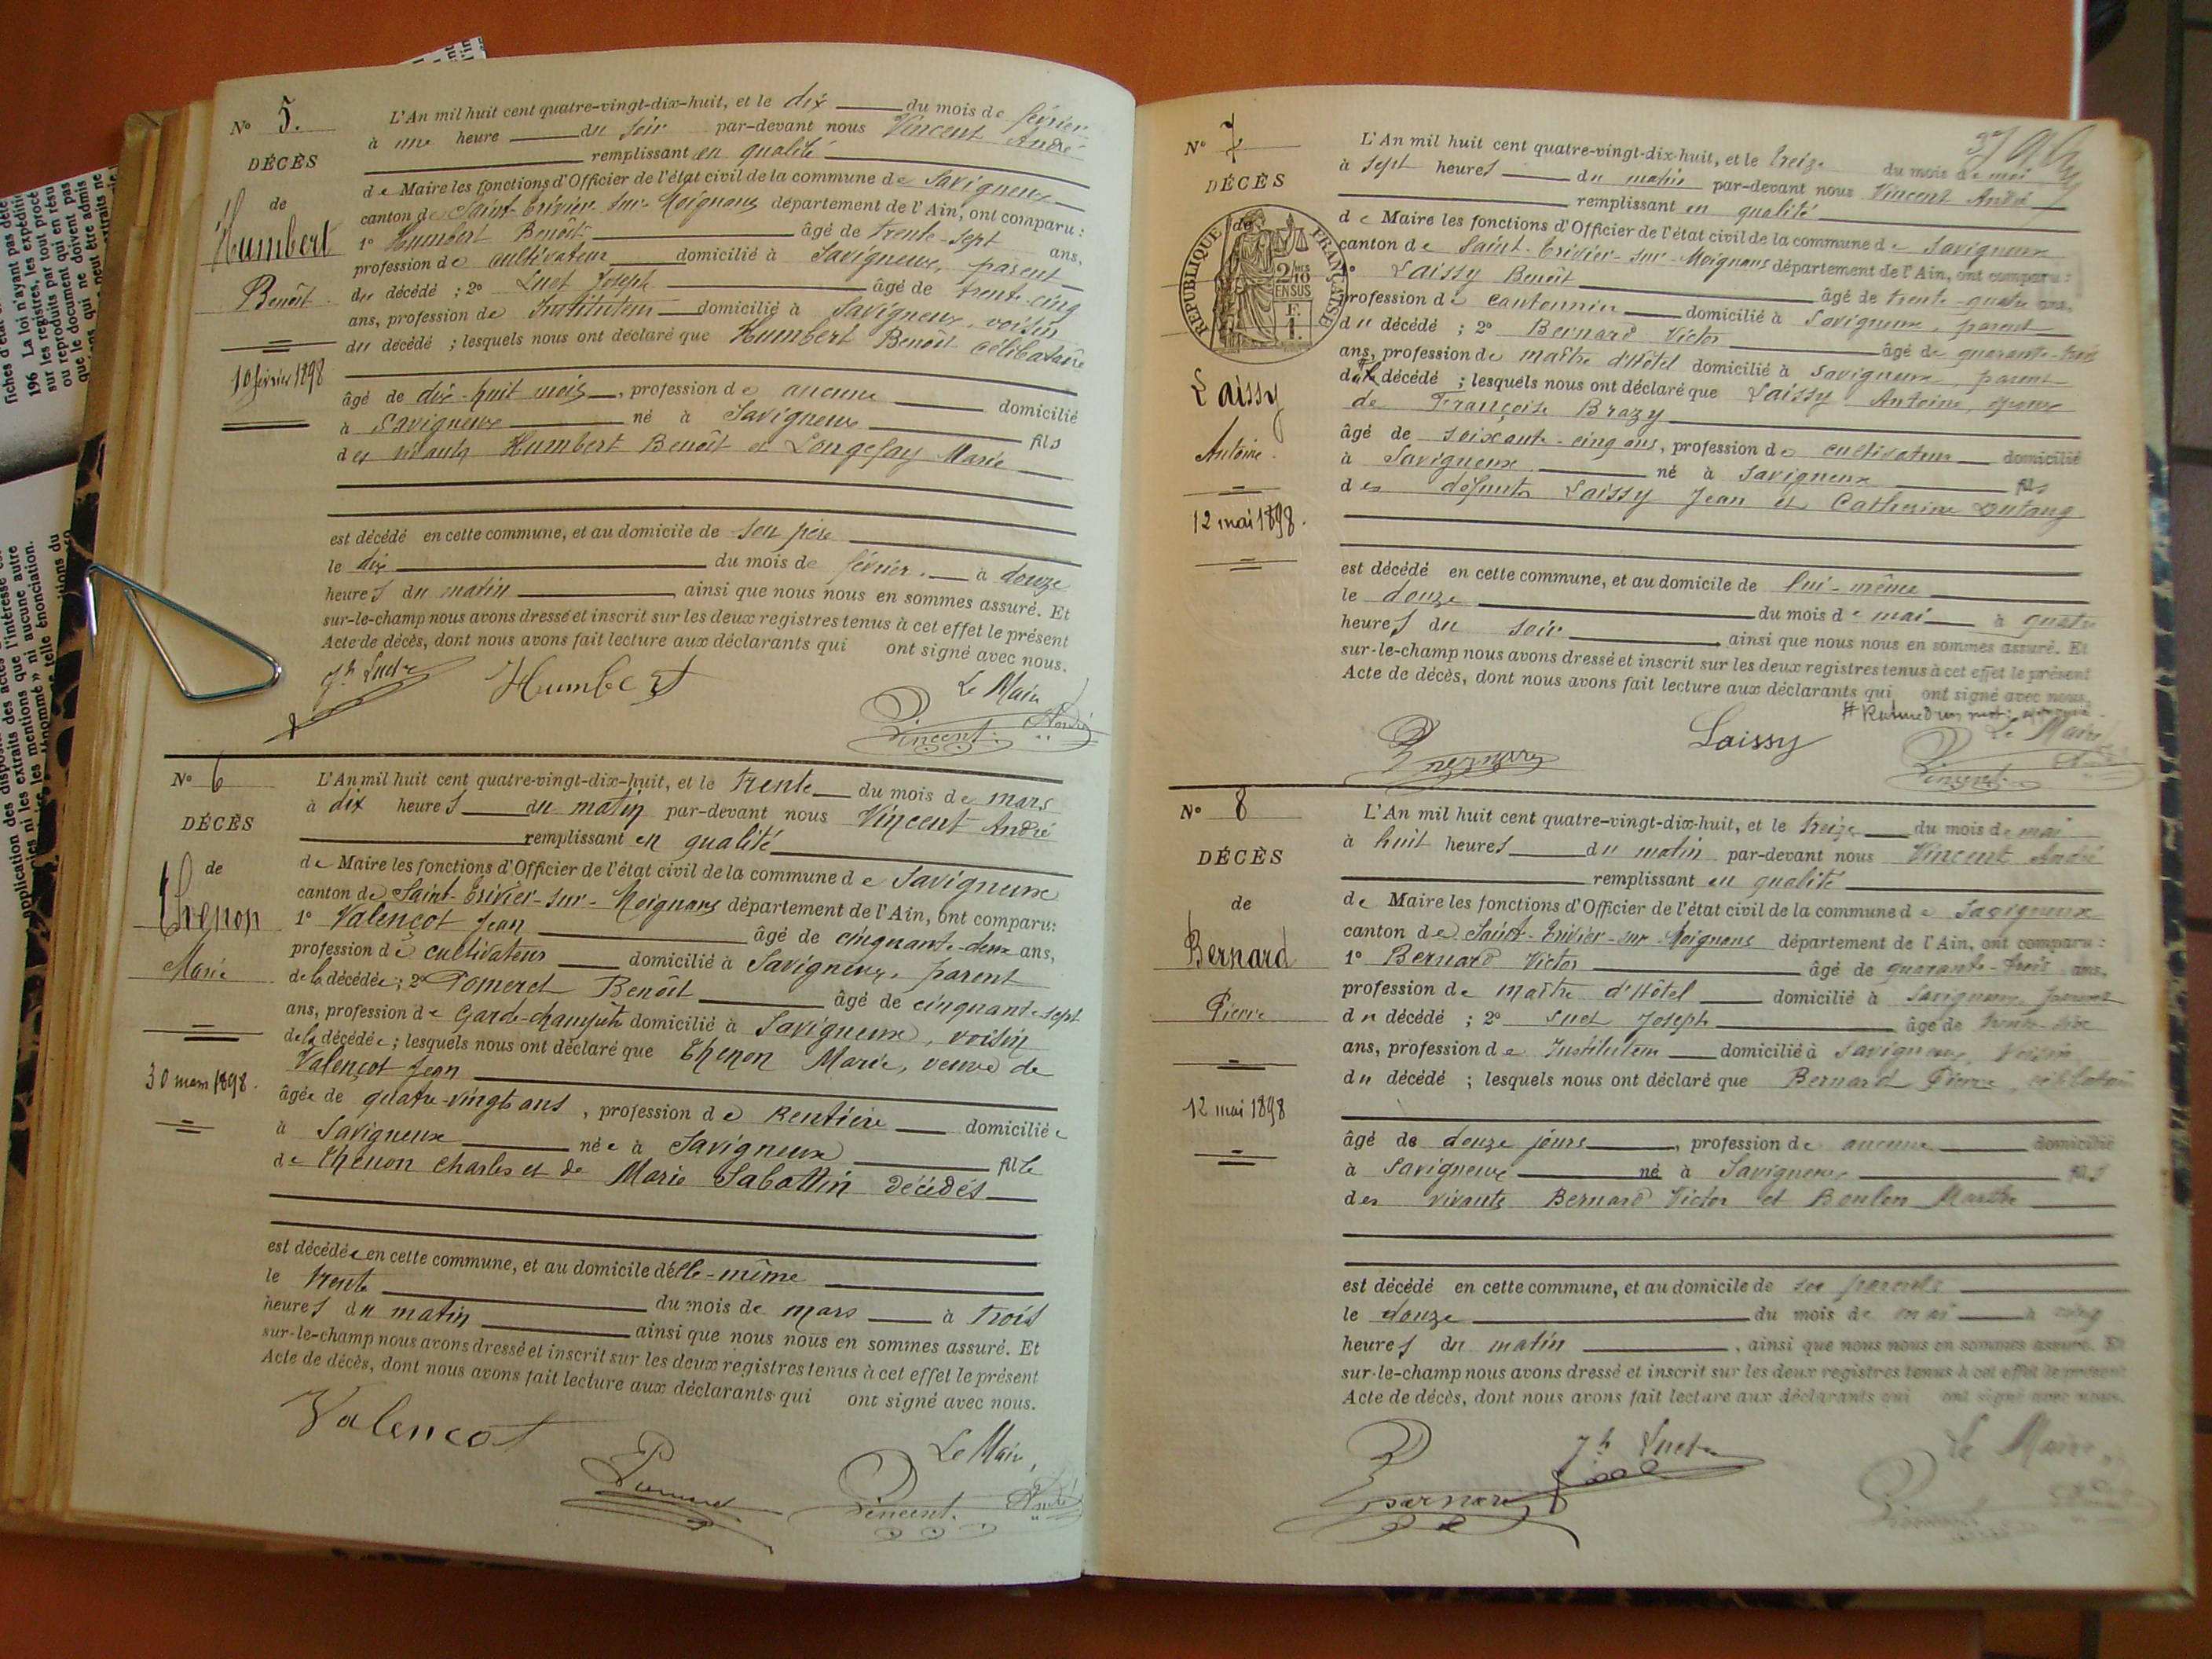 N° 5.
DÉCÈS
de
Humbert
Benoît
10 février 1898
L'An mil huit cent quatre-vingt-dix-huit, et le dix du mois de février
à une heure du soir par-devant nous Vincent André
remplissant en qualité
de Maire les fonctions d'Officier de l'état civil de la commune de Savigneux
canton de Saint-Trivier-sur-Moignans département de l'Ain, ont comparu :
1° Humbert Benoît âgé de trente-sept ans,
profession de cultivateur domicilié à Savigneux, parent
du décédé ; 2° Suet Joseph âgé de trente-cinq
ans, profession de Instituteur domicilié à Savigneux, voisin
du décédé ; lesquels nous ont déclaré que Humbert Benoît célibataire
âgé de dix-huit mois, profession de aucune domicilié
à Savigneux né à Savigneux fils
des vivants Humbert Benoît et Longefay Marie
est décédé en cette commune, et au domicile de son père
le dix du mois de février à douze
heures du matin ainsi que nous nous en sommes assuré. Et
sur-le-champ nous avons dressé et inscrit sur les deux registres tenus à cet effet le présent
Acte de décès, dont nous avons fait lecture aux déclarants qui ont signé avec nous.
Jh Suet Humbert Le Maire
Vincent André
N° 6
DÉCÈS
de
Thenon
Marie
30 mars 1898.
L'An mil huit cent quatre-vingt-dix-huit, et le trente du mois de mars
à dix heures du matin par-devant nous Vincent André
remplissant en qualité
de Maire les fonctions d'Officier de l'état civil de la commune de Savigneux
canton de Saint-Trivier-sur-Moignans département de l'Ain, ont comparu:
1° Valençot Jean âgé de cinquante-deux ans,
profession de cultivateur domicilié à Savigneux, parent
de la décédée ; 2° Pomeret Benoît âgé de cinquante-sept
ans, profession de Garde-champêtre domicilié à Savigneux, voisin
de la décédée ; lesquels nous ont déclaré que Thenon Marie, veuve de
Valençot Jean
âgée de quatre-vingts ans, profession de Rentière domiciliée
à Savigneux née à Savigneux fille
de Thenon Charles et de Marie Sabattin décédés
est décédée en cette commune, et au domicile d'elle-même
le trente du mois de mars à trois
heures du matin ainsi que nous nous en sommes assuré. Et
sur-le-champ nous avons dressé et inscrit sur les deux registres tenus à cet effet le présent
Acte de décès, dont nous avons fait lecture aux déclarants qui ont signé avec nous.
Valencot Le Maire,
Pomeret Vincent André
N° 7
DÉCÈS
de
RÉPUBLIQUE FRANÇAISE
2/10
EN SUS
Laissy
Antoine
12 mai 1898.
L'An mil huit cent quatre-vingt-dix-huit, et le treize du mois de mai
à sept heures du matin par-devant nous Vincent André
remplissant en qualité
de Maire les fonctions d'Officier de l'état civil de la commune de Savigneux
canton de Saint-Trivier-sur-Moignans département de l'Ain, ont comparu :
1° Laissy Benoît âgé de trente-quatre ans,
profession de cantonnier domicilié à Savigneux, parent
du décédé ; 2° Bernard Victor âgé de quarante-trois
ans, profession de maître d'Hôtel domicilié à Savigneux, parent
du décédé ; lesquels nous ont déclaré que Laissy Antoine, époux
de Françoise Brazy
âgé de soixante-cinq ans, profession de cultivateur domicilié
à Savigneux né à Savigneux fils
des défunts Laissy Jean et Catherine Dutang
est décédé en cette commune, et au domicile de lui-même
le douze du mois de mai à quatre
heures du soir ainsi que nous nous en sommes assuré. Et
sur-le-champ nous avons dressé et inscrit sur les deux registres tenus à cet effet le présent
Acte de décès, dont nous avons fait lecture aux déclarants qui ont signé avec nous.
Le Maire
Bernard Laissy Vincent
N° 8
DÉCÈS
de
Bernard
Pierre
12 mai 1898
L'An mil huit cent quatre-vingt-dix-huit, et le treize du mois de mai
à huit heures du matin par-devant nous Vincent André
remplissant en qualité
de Maire les fonctions d'Officier de l'état civil de la commune de Savigneux
canton de Saint-Trivier-sur-Moignans département de l'Ain, ont comparu :
1° Bernard Victor âgé de quarante-trois ans,
profession de maître d'Hôtel domicilié à Savigneux parent
du décédé ; 2° Suet Joseph âgé de trente-cinq
ans, profession de Instituteur domicilié à Savigneux, voisin
du décédé ; lesquels nous ont déclaré que Bernard Pierre, célibataire
âgé de douze jours, profession de aucune domicilié
à Savigneux né à Savigneux fils
des vivants Bernard Victor et Boulon Marthe
est décédé en cette commune, et au domicile de ses parents
le douze du mois de mai à cinq
heures du matin, ainsi que nous nous en sommes assuré. Et
sur-le-champ nous avons dressé et inscrit sur les deux registres tenus à cet effet le présent
Acte de décès, dont nous avons fait lecture aux déclarants qui ont signé avec nous.
Jh Suet Le Maire,
Bernard Vincent